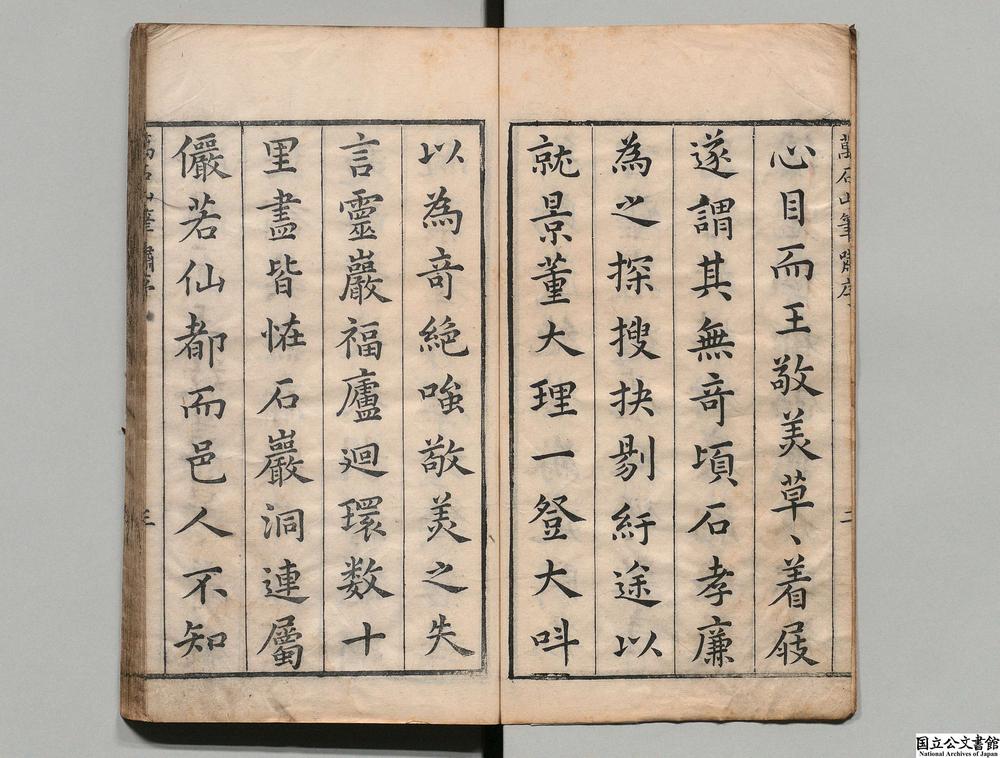 萬石山筆嘯序
二
心目而王敬美草〻着屐
遂謂其無竒頃石孝廉
為之探搜抉剔紆途以
就景董大理一登大呌
以為竒絶嗤敬美之失
言靈巖福廬迴環数十
里盡皆恠石巖洞連屬
儼若仙都而邑人不知
萬石山筆嘯序
三
国立公文書館
National Archives of Japan